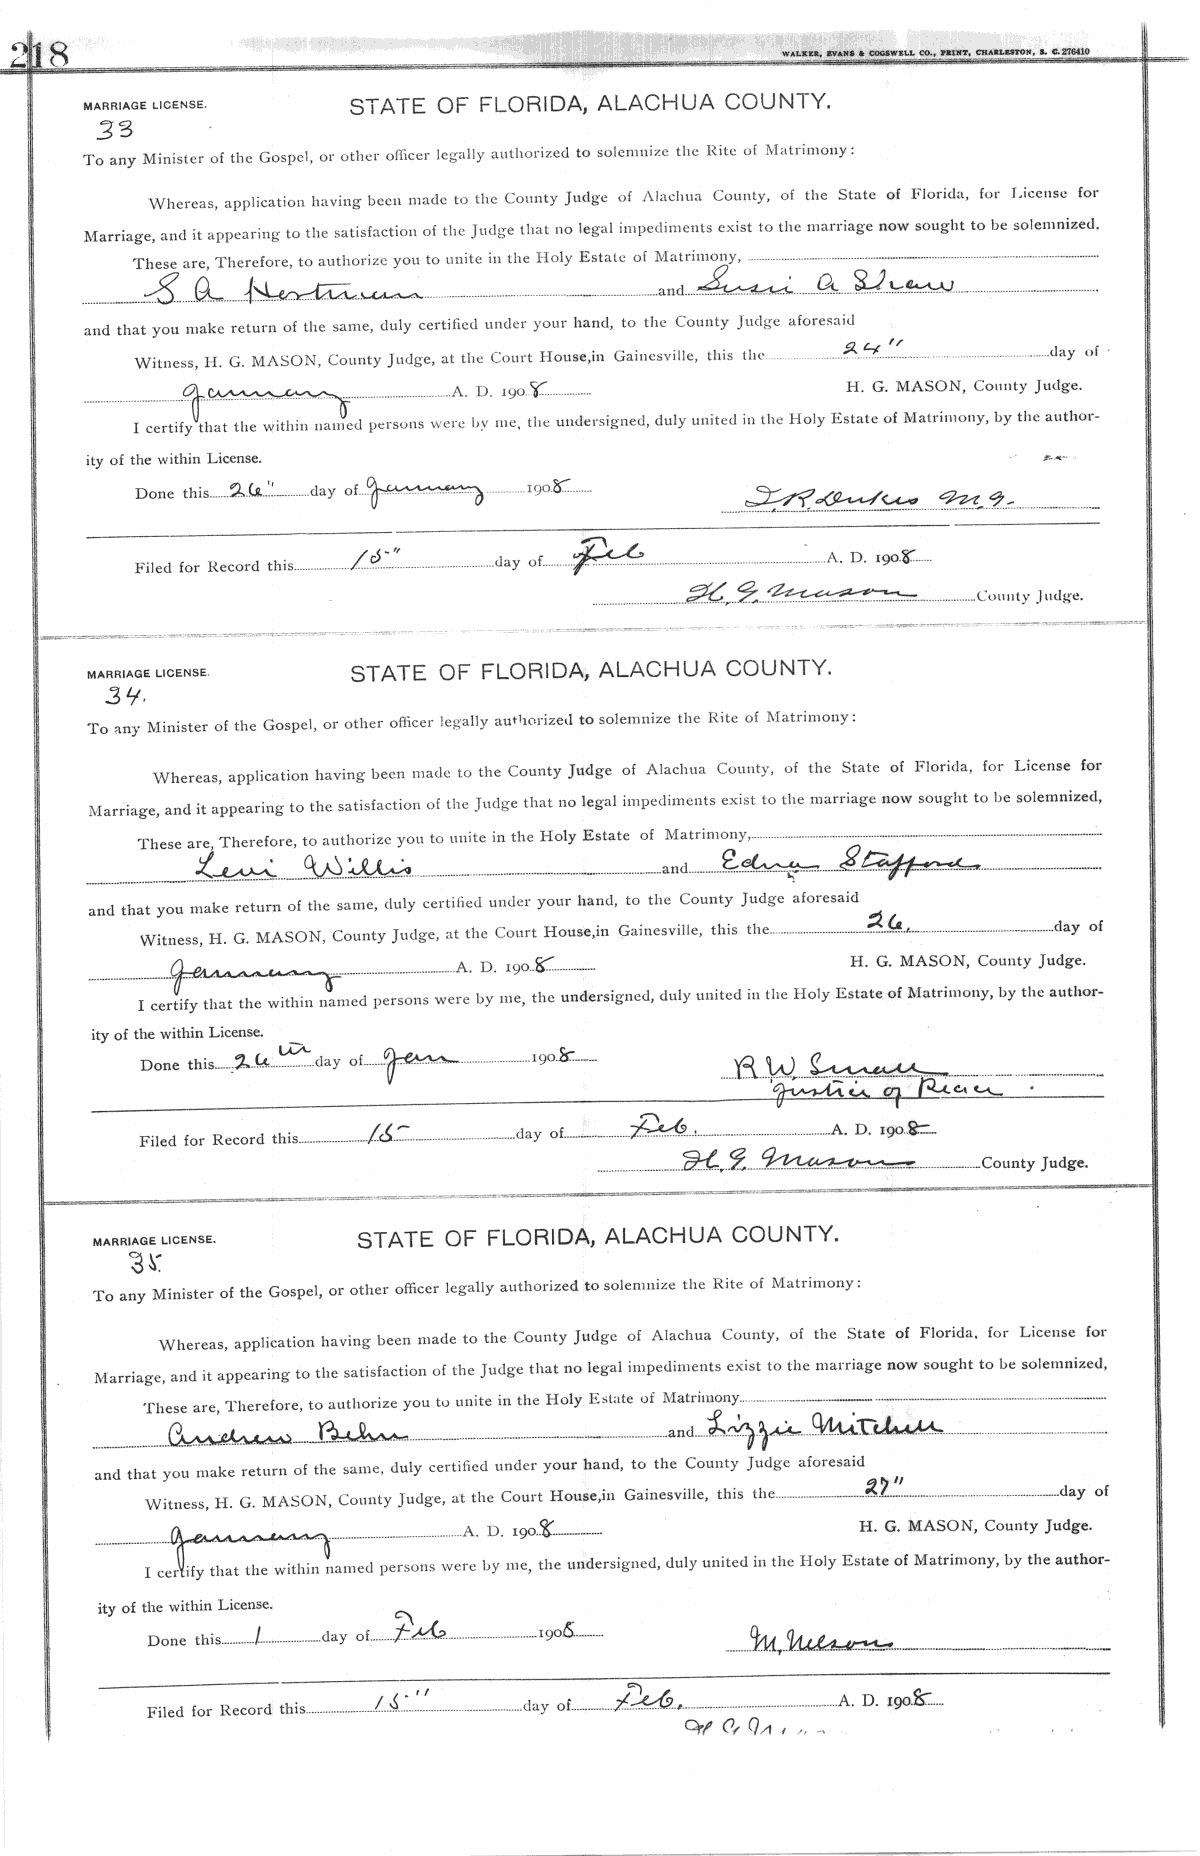 218
WALKER, EVANS & COGSWELL CO., PRINT, CHARLESTON, S. C. 276410
MARRIAGE LICENSE. STATE OF FLORIDA, ALACHUA COUNTY.
33
To any Minister of the Gospel, or other officer legally authorized to solemnize the Rite of Matrimony:
Whereas, application having been made to the County Judge of Alachua County, of the State of Florida, for License for
Marriage, and it appearing to the satisfaction of the Judge that no legal impediments exist to the marriage now sought to be solemnized,
These are, Therefore, to authorize you to unite in the Holy Estate of Matrimony,
S A and Susie A Shaw
and that you make return of the same, duly certified under your hand, to the County Judge aforesaid
Witness, H. G. MASON, County Judge, at the Court House, in Gainesville, this the 24" day of
January A. D. 1908 H. G. MASON, County Judge.
I certify that the within named persons were by me, the undersigned, duly united in the Holy Estate of Matrimony, by the author-
ity of the within License.
Done this 26" day of January 1908
M.G.
Filed for Record this 15" day of Feb A. D. 1908
H. G. Mason County Judge.
MARRIAGE LICENSE. STATE OF FLORIDA, ALACHUA COUNTY.
34.
To any Minister of the Gospel, or other officer legally authorized to solemnize the Rite of Matrimony:
Whereas, application having been made to the County Judge of Alachua County, of the State of Florida, for License for
Marriage, and it appearing to the satisfaction of the Judge that no legal impediments exist to the marriage now sought to be solemnized,
These are, Therefore, to authorize you to unite in the Holy Estate of Matrimony,
Levi Willis and Edna Stafford
and that you make return of the same, duly certified under your hand, to the County Judge aforesaid
Witness, H. G. MASON, County Judge, at the Court House, in Gainesville, this the 26. day of
January A. D. 1908 H. G. MASON, County Judge.
I certify that the within named persons were by me, the undersigned, duly united in the Holy Estate of Matrimony, by the author-
ity of the within License.
Done this 26th day of Jan 1908
R W Small
Justice of Peace.
Filed for Record this 15 day of Feb. A. D. 1908
H. G. Mason County Judge.
MARRIAGE LICENSE. STATE OF FLORIDA, ALACHUA COUNTY.
35.
To any Minister of the Gospel, or other officer legally authorized to solemnize the Rite of Matrimony:
Whereas, application having been made to the County Judge of Alachua County, of the State of Florida, for License for
Marriage, and it appearing to the satisfaction of the Judge that no legal impediments exist to the marriage now sought to be solemnized,
These are, Therefore, to authorize you to unite in the Holy Estate of Matrimony
Andrew Behn and Lizzie Mitchell
and that you make return of the same, duly certified under your hand, to the County Judge aforesaid
Witness, H. G. MASON, County Judge, at the Court House, in Gainesville, this the 27" day of
January A. D. 1908 H. G. MASON, County Judge.
I certify that the within named persons were by me, the undersigned, duly united in the Holy Estate of Matrimony, by the author-
ity of the within License.
Done this 1 day of Feb 1908
M. Nelson
Filed for Record this 15" day of Feb. A. D. 1908